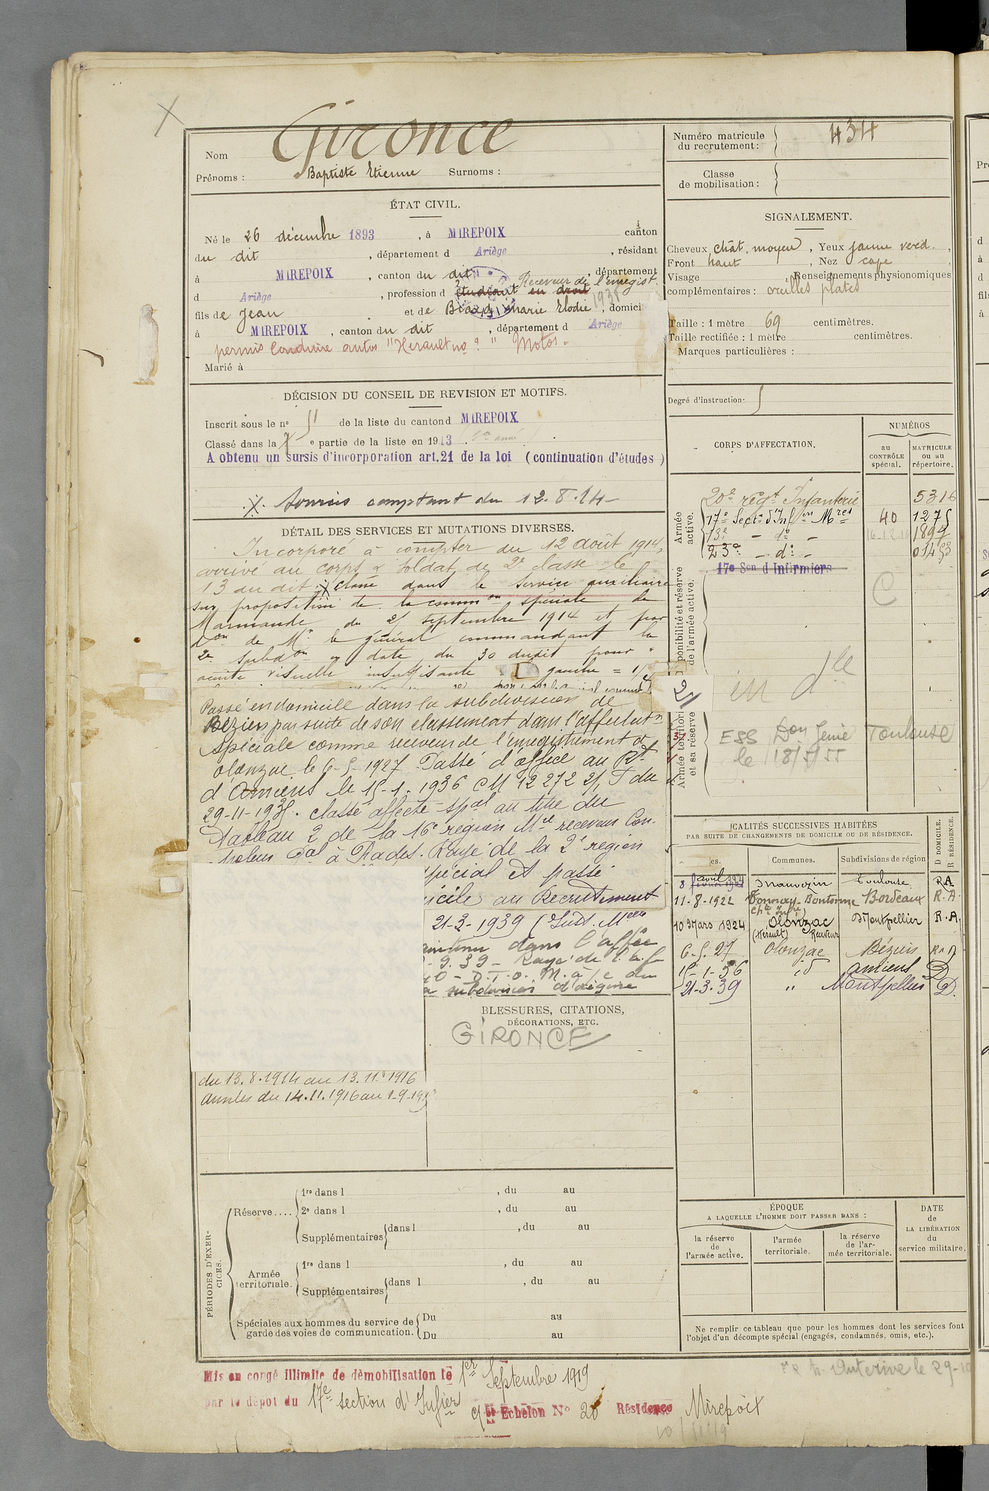 Gironce
Nom
Prénoms : Baptiste Etienne Surnoms :
ÉTAT CIVIL.
Né le 26 décembre 1893, à MIREPOIX canton
du dit, département d Ariège, résidant
à MIREPOIX, canton du dit, département
d Ariège, profession d étudiant en droit Receveur de l'enregist.
fils de Jean et de Marie Elodie, domici
à MIREPOIX, canton du dit, département d Ariège
permis conduire autos "Herault no ? " Motos.
Marié à
DÉCISION DU CONSEIL DE REVISION ET MOTIFS.
Inscrit sous le no 51 de la liste du canton d MIREPOIX
Classé dans la e partie de la liste en 1913
A obtenu un sursis d'incorporation art. 21 de la loi (continuation d'études)
Services comptant du 12.8.14
DÉTAIL DES SERVICES ET MUTATIONS DIVERSES.
Incorporé à compter du 12 août 1914,
arrivé au corps & soldat de 2e classe le
13 du dit. Classé dans le service auxiliaire
sur proposition de la common spéciale de
Marmande du 25 septembre 1914 et par
don de Mr le général commandant la
2e subdon en date du 30 dudit pour
acuité visuelle insuffisante gauche = 1/
Passé en domicile dans la subdivision de
Béziers par suite de son classement dans l'affectation
spéciale comme receveur de l'enregistrement à
Olonzac le 6-5-1927 Passé d'office au Rt
d'Amiens le 15-1-1936 CM 12272 2/1 T du
29-11-1935. Classé affecté spal au titre du
Tableau 2 de la 16e région Mle receveur Con-
troleur à Prades. Rayé de la 2e région
spécial et passé
icile au Recrutement
21-3-1939 (Subd. Mon
maintenu dans l'affon
9.39 - Rayé de l'af
40 - D.T.O. M. a/c du
subdivision d'Ariège
BLESSURES, CITATIONS,
DÉCORATIONS, ETC.
GIRONCE
du 13.8.1914 au 13.11.1916
années du 14.11.1916 au 1-9-19
PÉRIODES D'EXERCICES.
Réserve....
1re dans l , du au
2e dans l , du au
Supplémentaires dans l , du au
Armée territoriale.
1re dans l , du au
Supplémentaires dans l , du au
Spéciales aux hommes du service de garde des voies de communication.
Du au
Du au
Mis en congé illimité de démobilisation le 1er Septembre 1919
par le dépôt du 17e section d'Infier 5e Echelon No 20 Résidence Mirepoix
Numéro matricule du recrutement : 434
Classe de mobilisation :
SIGNALEMENT.
Cheveux chât. moyen, Yeux jaune verd.,
Front haut, Nez cave
Visage Renseignements physionomiques
complémentaires : oreilles plates
Taille : 1 mètre 69 centimètres.
Taille rectifiée : 1 mètre centimètres.
Marques particulières :
Degré d'instruction :
CORPS D'AFFECTATION.
NUMÉROS
au CONTRÔLE spécial.
MATRICULE ou au répertoire.
Armée active.
20e régt Infanterie 5316
17e Secton d'Infers Mres 40 1275
13e - do -
23e - do - 01453
17e Son d Infirmiers
C
in dle
ESS Don Génie Toulouse
le 18/5/55
LOCALITÉS SUCCESSIVES HABITÉES
PAR SUITE DE CHANGEMENTS DE DOMICILE OU DE RÉSIDENCE.
Communes. Subdivisions de région D DOMICILE. R RÉSIDENCE.
8 avril Toulouse RA
11-8-1922 Tonnay-Boutonne Bordeaux R.A
10 Mars 1924 Olonzac (Hérault) Receveur Montpellier R.A.
6-5-27 Olonzac Béziers R A
15-1-36 id Amiens D
21-3-39 " Montpellier D.
ÉPOQUE
A LAQUELLE L'HOMME DOIT PASSER DANS :
la réserve de l'armée active.
l'armée territoriale.
la réserve de l'armée territoriale.
DATE de LA LIBÉRATION du service militaire.
Ne remplir ce tableau que pour les hommes dont les services font
l'objet d'un décompte spécial (engagés, condamnés, omis, etc.).